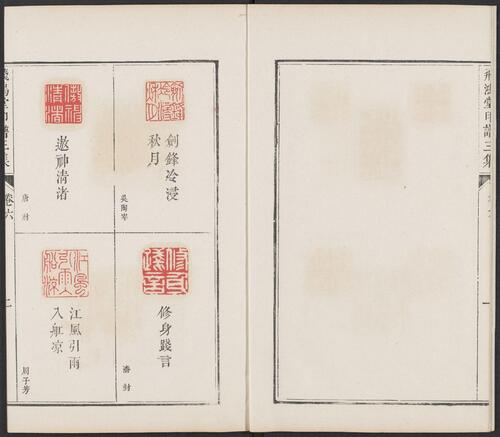 飛鴻堂印譜三集
劍鋒冷浸
秋月
吳陶宰
遨神清渚
修身踐言
江風引雨
入舡凉
周子芳
飛鴻堂印譜三集
卷六